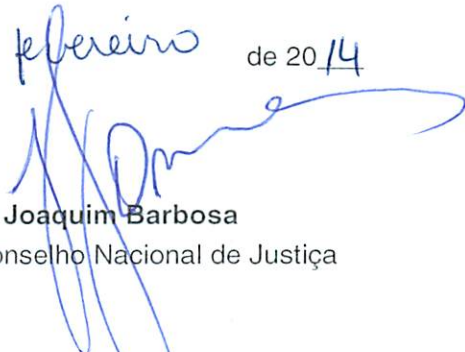 fevereiro de 2014
Joaquim Barbosa
onselho Nacional de Justiça